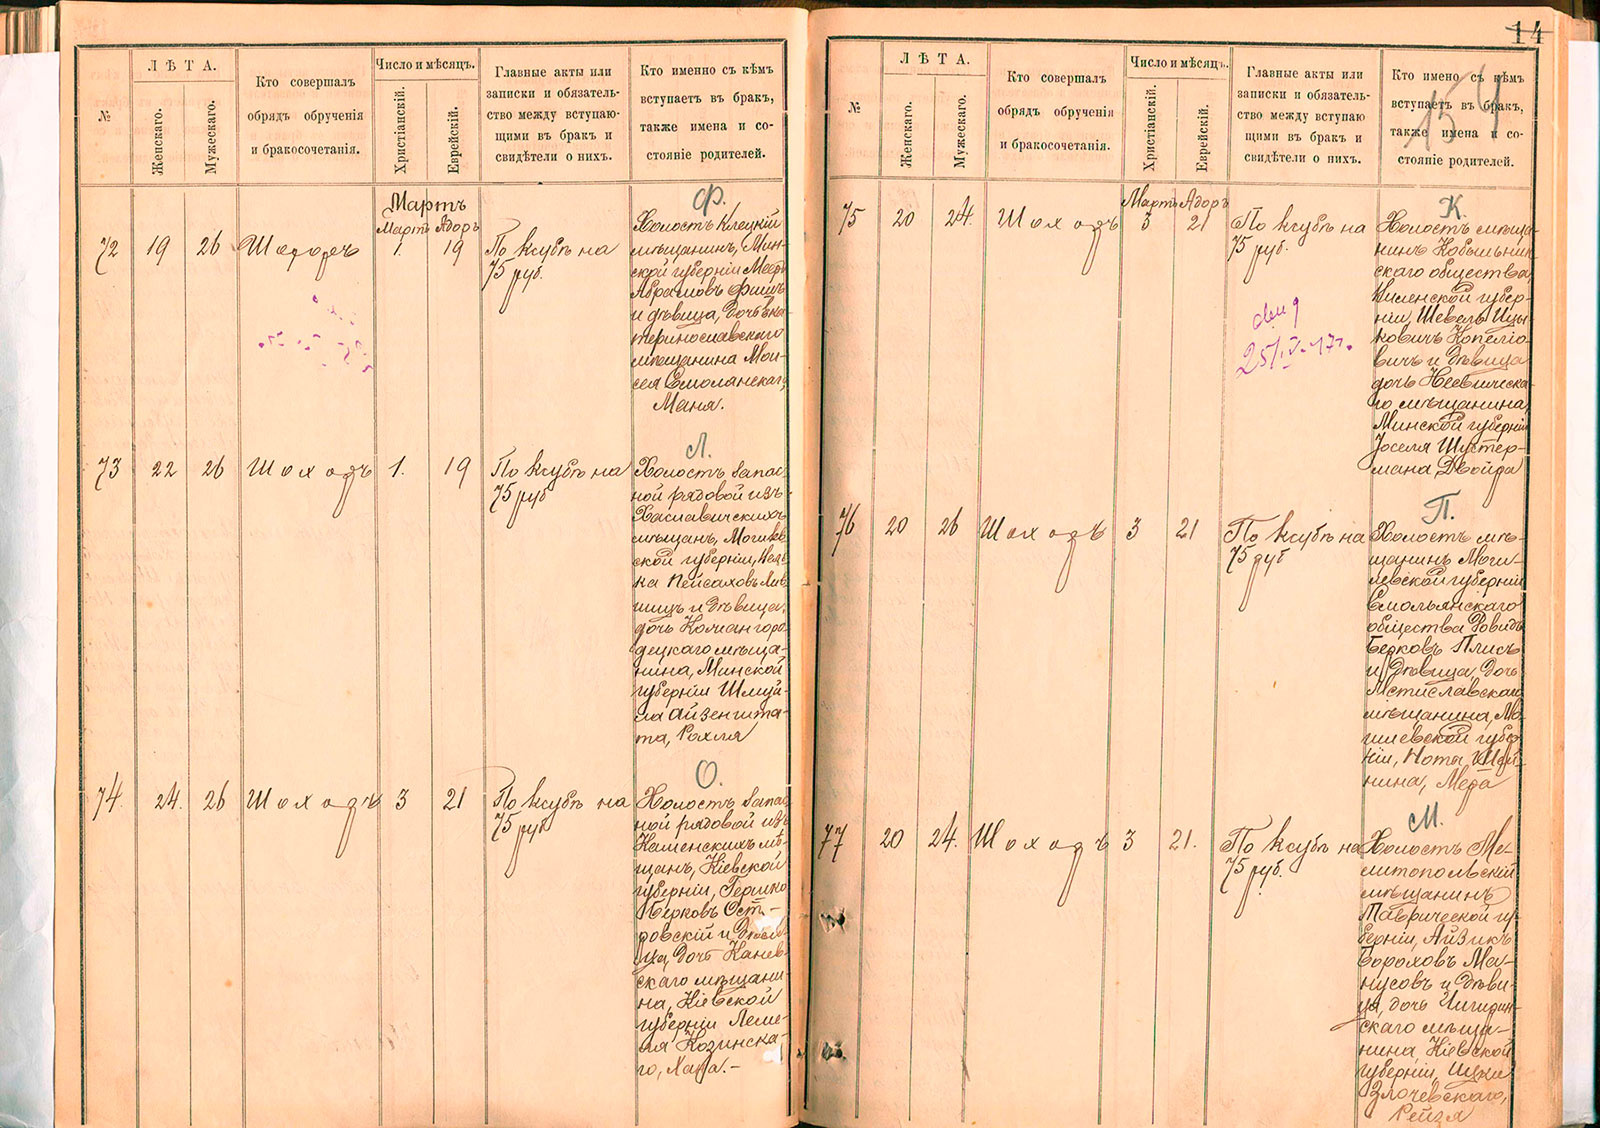 №
ЛѢТА.
Женскаго.
Мужескаго.
Кто совершалъ
обрядъ обрученія
и бракосочетанія.
Число и мѣсяцъ.
Христіанскій.
Еврейскій.
Главные акты или
записки и обязатель-
ство между вступаю-
щими въ бракъ и
свидѣтели о нихъ.
Кто именно съ кѣмъ
вступаетъ въ бракъ,
также имена и со-
стояніе родителей.
Мартъ
Мартъ Адоръ
72 19 26 Шоходъ 1. 19
По ксубѣ на
75 руб.
Ф.
Холостъ Клецкій
мѣщанинъ, Мин-
ской губерніи
Абрамовъ Фишъ
и дѣвица, дочь Ека-
теринославскаго
мѣщанина Мои-
сея Смолянскаго,
Маня.
73 22 26 Шоходъ 1. 19
По ксубѣ на
75 руб
Л.
Холостъ запас-
ной рядовой изъ
Хаславичскихъ
мѣщанъ, Могилев-
ской губерніи,
Пейсаховъ Лив-
шицъ и дѣвица,
дочь Кожангоро-
децкаго мѣща-
нина, Минской
губерніи Шмуй-
ла Айзеншта-
та, Рохля
74. 24. 26 Шоходъ 3 21
По ксубѣ на
75 руб
О.
Холостъ запас-
ной рядовой изъ
Каменскихъ мѣ-
щанъ, Кіевской
губерніи, Гершко
Берковъ Ост-
ровскій и дѣви-
ца, дочь Канев-
скаго мѣщани-
на, Кіевской
губерніи Леме-
ля Козинска-
го, Хана.-
14
154
№
ЛѢТА.
Женскаго.
Мужескаго.
Кто совершалъ
обрядъ обрученія
и бракосочетанія.
Число и мѣсяцъ.
Христіанскій.
Еврейскій.
Главные акты или
записки и обязатель-
ство между вступаю
щими въ бракъ и
свидѣтели о нихъ.
Кто имено съ кѣмъ
вступаетъ въ бракъ,
также имена и со-
стояніе родителей.
Мартъ Адоръ
75 20 24. Шоходъ 3 21
По ксубѣ на
75 руб.
25/IV-17г.
К.
Холостъ мѣща-
нинъ Кобыльник-
скаго общества,
Виленской губер-
ніи, Шевель Ицы-
ковичъ Копелio-
вичъ и дѣвица
дочь Несвижска-
го мѣщанина,
Минской губерніи
Іоселя Шустер-
мана Двойра
76 20 26 Шоходъ 3 21
По ксубѣ на
75 руб
П.
Холостъ мѣ-
щанинъ Моги-
левской губерніи
Смольянскаго
общества Ровидъ
Берковъ Плисъ
и дѣвица, дочь
Мстиславскаго
мѣщанина, Мо-
гилевской губер-
ніи, Нота Шей-
нина, Мера
77 20 24. Шоходъ 3 21.
По ксубѣ на
75 руб.
М.
Холостъ Ме-
литопольскій
мѣщанинъ
Таврической гу-
берніи, Айзикъ
Бороховъ Ма-
нусовъ и дѣви-
ца, дочь Чигирин-
скаго мѣща-
нина, Кіевской
губерніи, Ицки
Злочевскаго,
Рейзя